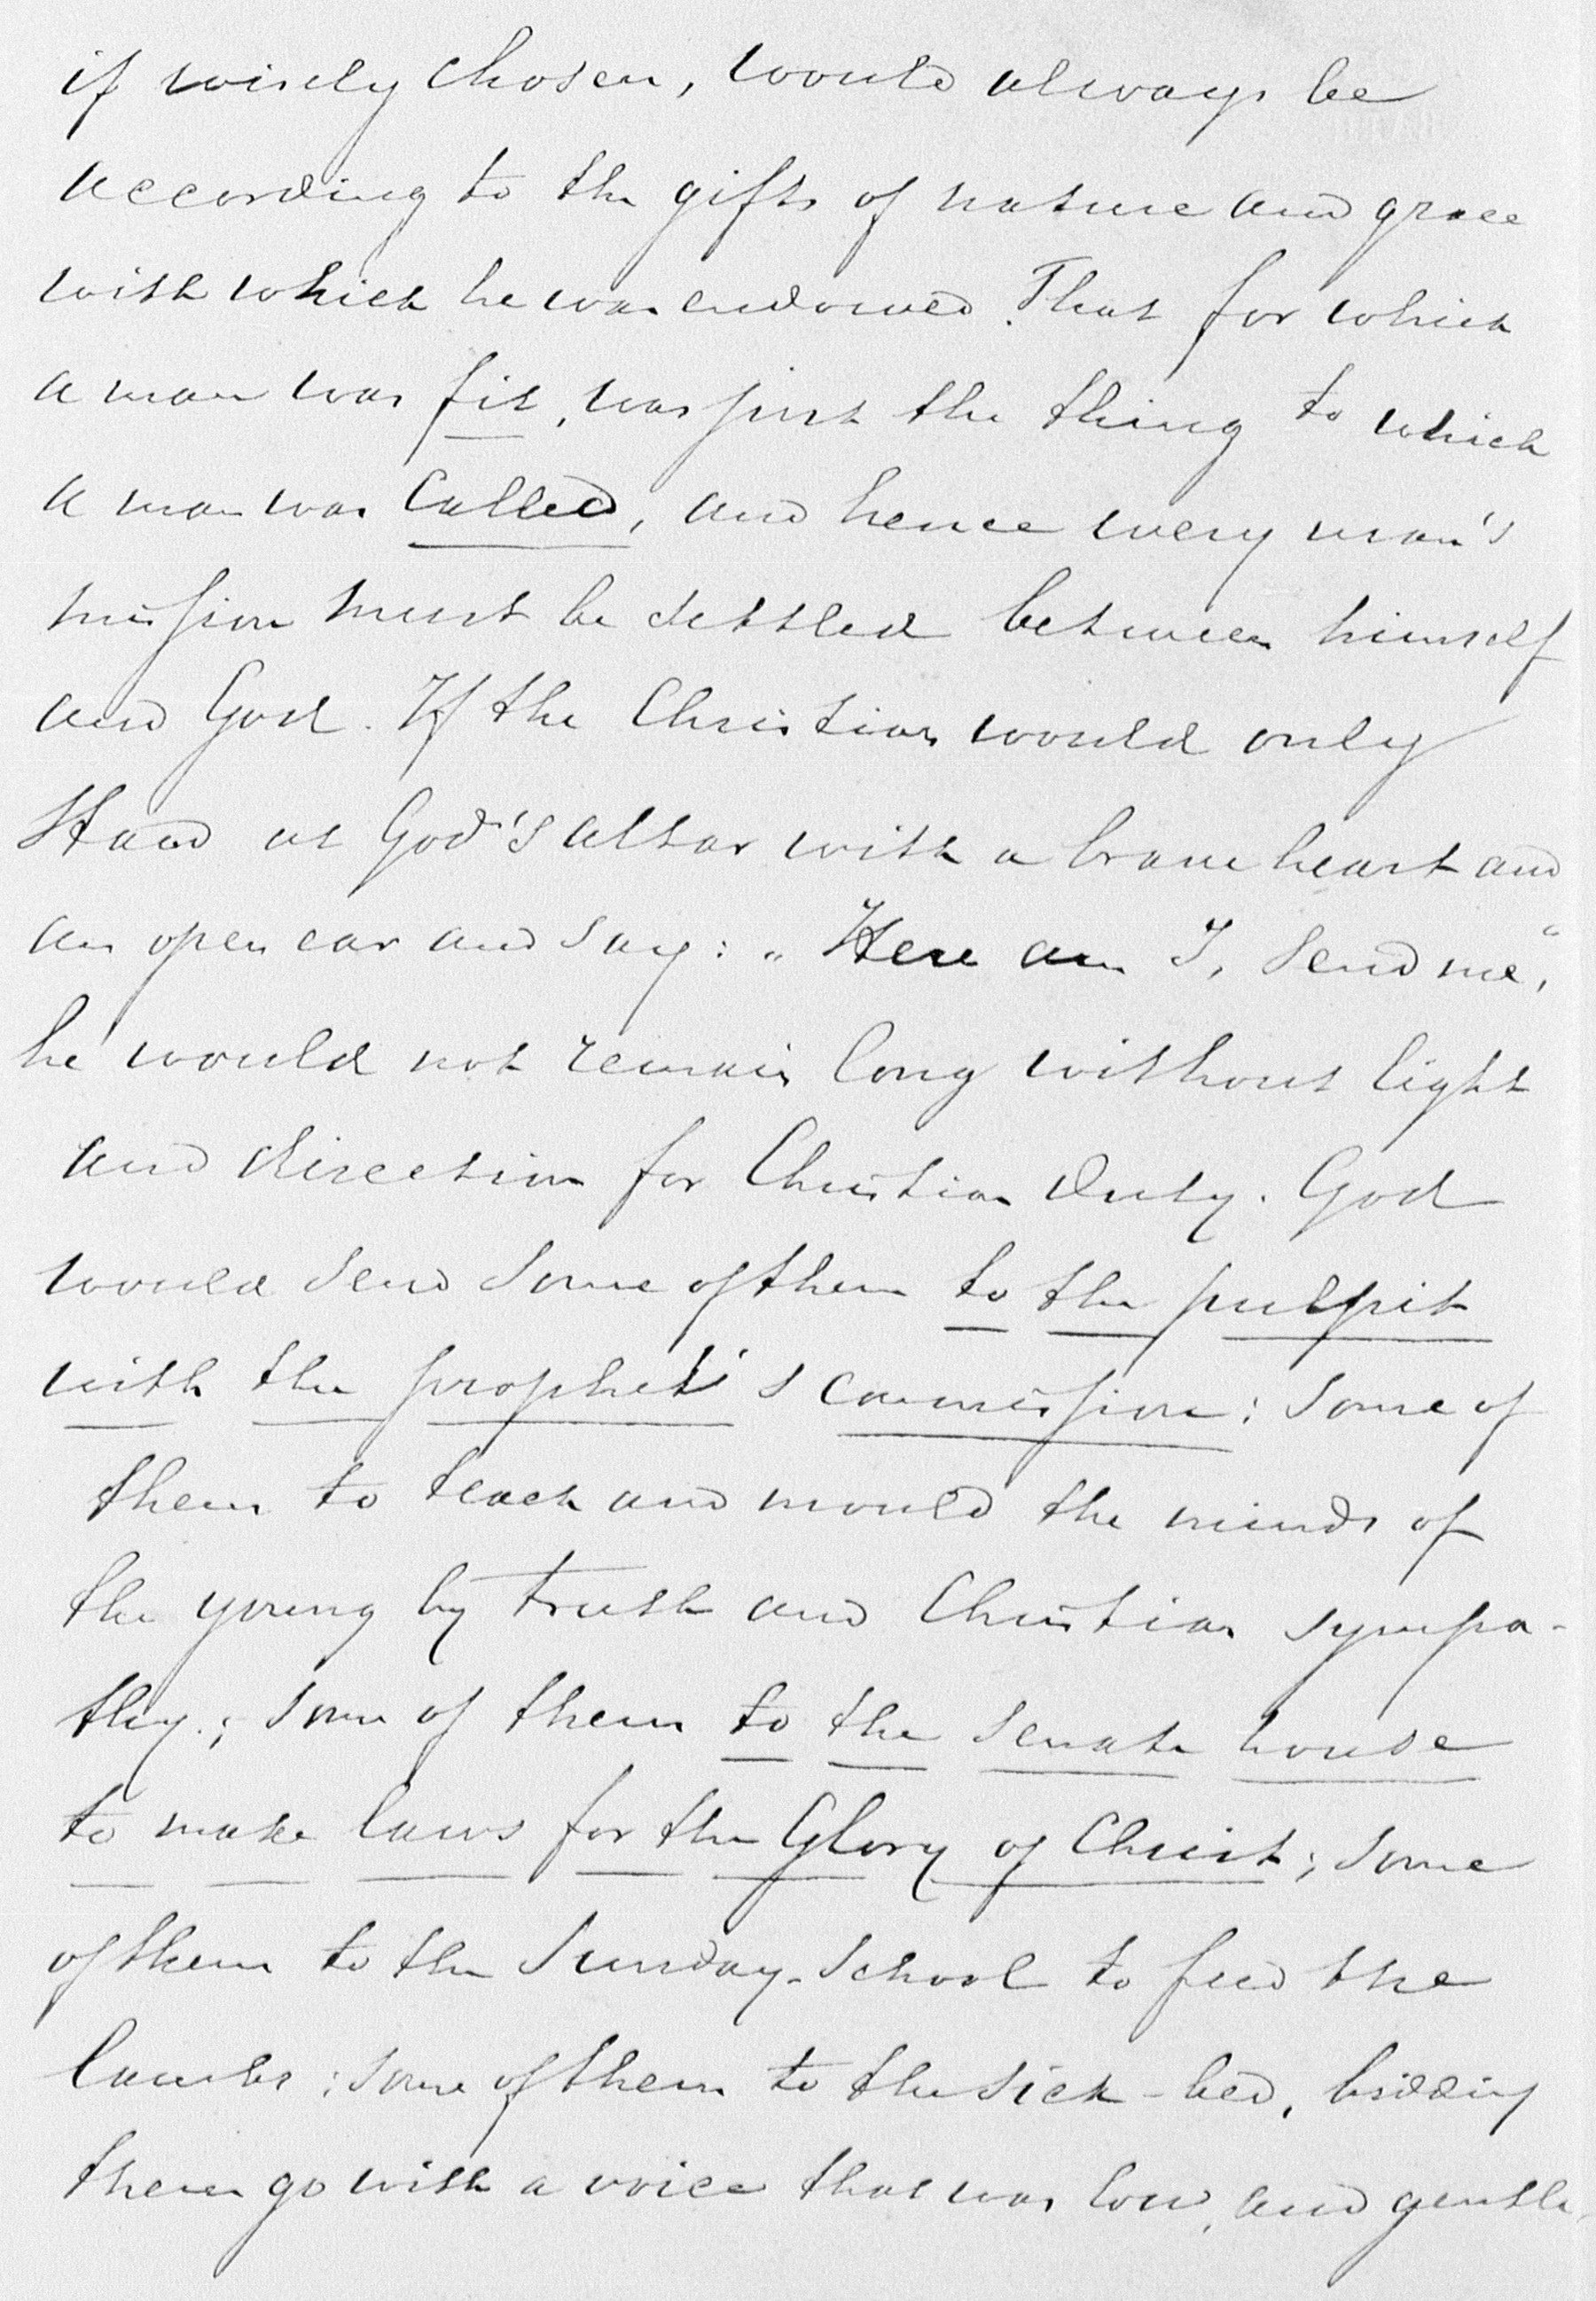 if wisely chosen, would always be
according to the gifts of nature and grace
with which he was endowed. That for which
a man was fit, was just the thing to which
a man was Called, and hence every man's
mission must be settled between himself
and God. If the Christian would only
Stand at God's altar with a brave heart and
an open ear and say: „Here am I, Send me“,
he would not remain long without light
and direction for Christian Duty. God
would send some of them to the pulpit
with the prophet's commission: some of
them to teach and mould the minds of
the young by truth and Christian sympa-
thy.; some of them to the senate house
to make laws for the Glory of Christ; some
of them to the Sunday-School to feed the
lambs; some of them to the sick-bed, bidding
them go with a voice that was low, and gentle,